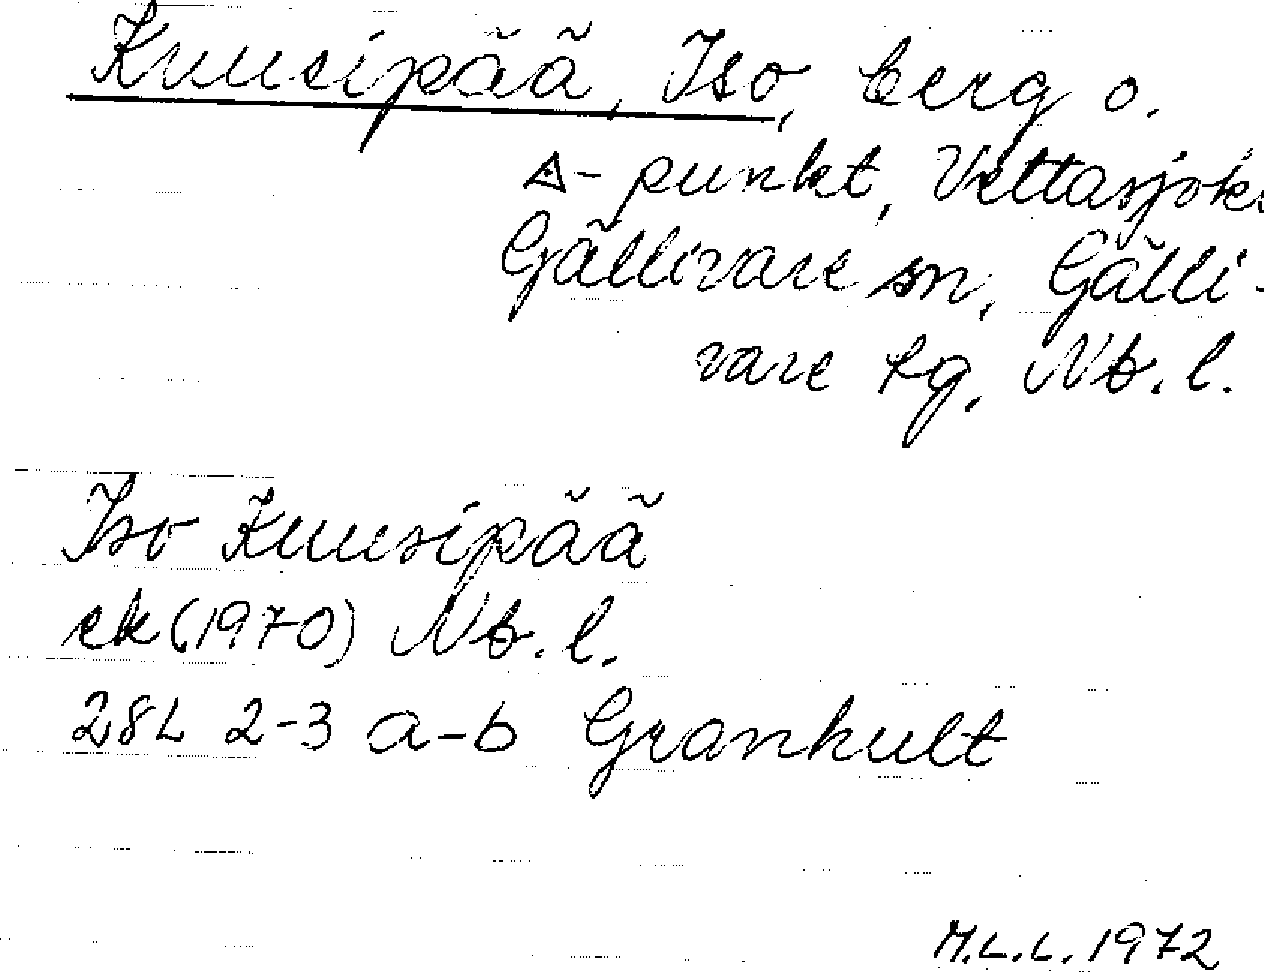 Kuusipää, Iso, berg o.
△-punkt, Vettasjoki
Gällivare sn, Gälli-
vare tg, Nb. l.
Iso Kuusipää
ek (1970) Nb. l.
28L 2-3 a-b Granhult
M.L.L. 1972